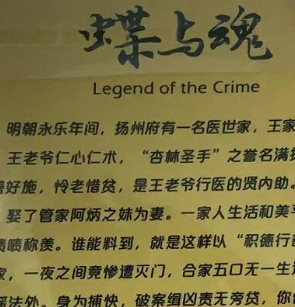 蝶与魂
Legend of the Crime
明朝永乐年间，扬州府有一名医世家，王家
王老爷仁心仁术，“杏林圣手”之誉名满
好施，怜老惜贫，是王老爷行医的贤内助。
娶了管家阿炳之妹为妻。一家人生活和美
啧称羡。谁能料到，就是这样以“积德行
，一夜之间竟惨遭灭门，合家五口无一生
法外。身为捕快，破案缉凶责无旁贷，你